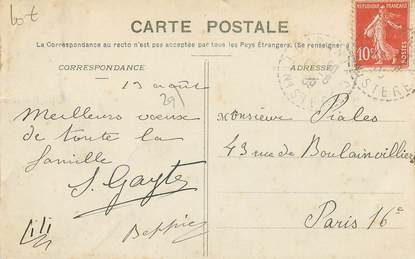 lot
CARTE POSTALE
La Correspondance au recto n'est pas acceptée par tous les Pays Étrangers. (Se renseigner à
RÉPUBLIQUE FRANÇAISE
10c
POSTES
CORRESPONDANCE
ADRESSE
13 août
29
Meilleurs voeux
de toute la
famille
Monsieur Piales
43 rue de Boulainvilliers
Paris 16e